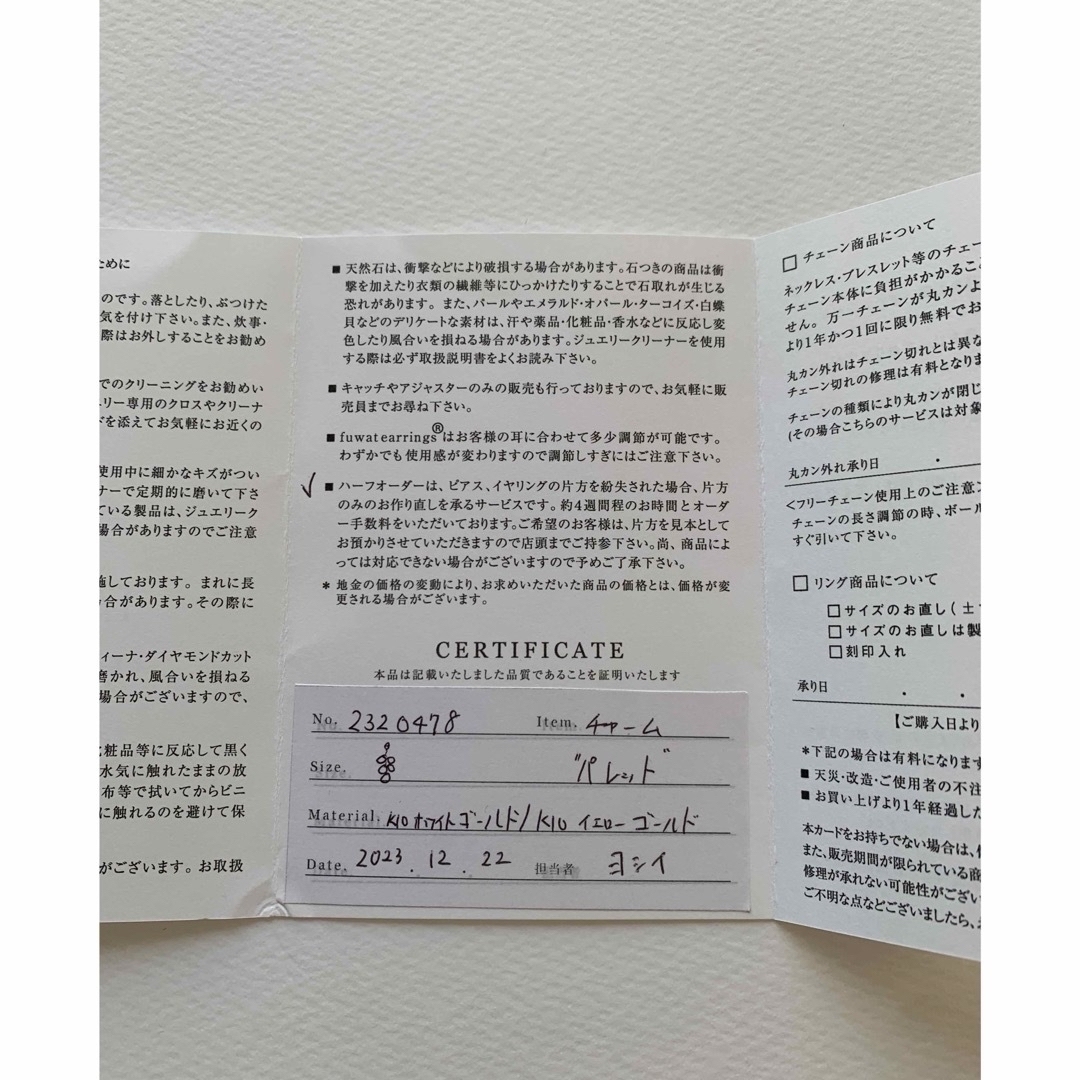 ために
のです。落としたり、ぶつけた
気を付け下さい。また、炊事・
際はお外しすることをお勧め
でのクリーニングをお勧めい
リー専用のクロスやクリーナ
ドを添えてお気軽にお近くの
使用中に細かなキズがつい
ナーで定期的に磨いて下さ
ている製品は、ジュエリーク
場合がありますのでご注意
施しております。 まれに長
合があります。その際に
ィーナ・ダイヤモンドカット
磨かれ、風合いを損ねる
場合がございますので、
化粧品等に反応して黒く
水気に触れたままの放
布等で拭いてからビニ
に触れるのを避けて保
がございます。お取扱
■ 天然石は、衝撃などにより破損する場合があります。石つきの商品は衝
撃を加えたり衣類の繊維等にひっかけたりすることで石取れが生じる
恐れがあります。また、パールやエメラルド・オパール・ターコイズ・白蝶
貝などのデリケートな素材は、汗や薬品・化粧品・香水などに反応し変
色したり風合いを損ねる場合があります。ジュエリークリーナーを使用
する際は必ず取扱説明書をよくお読み下さい。
■ キャッチやアジャスターのみの販売も行っておりますので、お気軽に販
売員までお尋ね下さい。
■ fuwat earrings®はお客様の耳に合わせて多少調節が可能です。
わずかでも使用感が変わりますので調節しすぎにはご注意下さい。
✓ ■ ハーフオーダーは、ピアス、イヤリングの片方を紛失された場合、片方
のみのお作り直しを承るサービスです。約4週間程のお時間とオーダ
ー手数料をいただいております。ご希望のお客様は、片方を見本として
お預かりさせていただきますので店頭までご持参下さい。尚、商品によ
っては対応できない場合がございますので予めご了承下さい。
* 地金の価格の変動により、お求めいただいた商品の価格とは、価格が変
更される場合がございます。
CERTIFICATE
本品は記載いたしました品質であることを証明いたします
No. 2320478 Item. チャーム
Size. "パレット"
Material. K10 ホワイトゴールド/K10 イエローゴールド
Date. 2023.12.22 担当者 ヨシイ
□ チェーン商品について
ネックレス・ブレスレット等のチェー
チェーン本体に負担がかかるこ
せん。万一チェーンが丸カンよ
より1年かつ1回に限り無料でお
丸カン外れはチェーン切れとは異な
チェーン切れの修理は有料となりま
チェーンの種類により丸カンが閉じ
(その場合こちらのサービスは対象
丸カン外れ承り日 ・
<フリーチェーン使用上のご注意
チェーンの長さ調節の時、ボール
すぐ引いて下さい。
□ リング商品について
□サイズのお直し(±
□サイズのお直しは製
□刻印入れ
承り日 ・ ・
【ご購入日より
*下記の場合は有料になります
■ 天災・改造・ご使用者の不注
■ お買い上げより1年経過した
本カードをお持ちでない場合は、
また、販売期間が限られている商
修理が承れない可能性がござい
ご不明な点などございましたら、